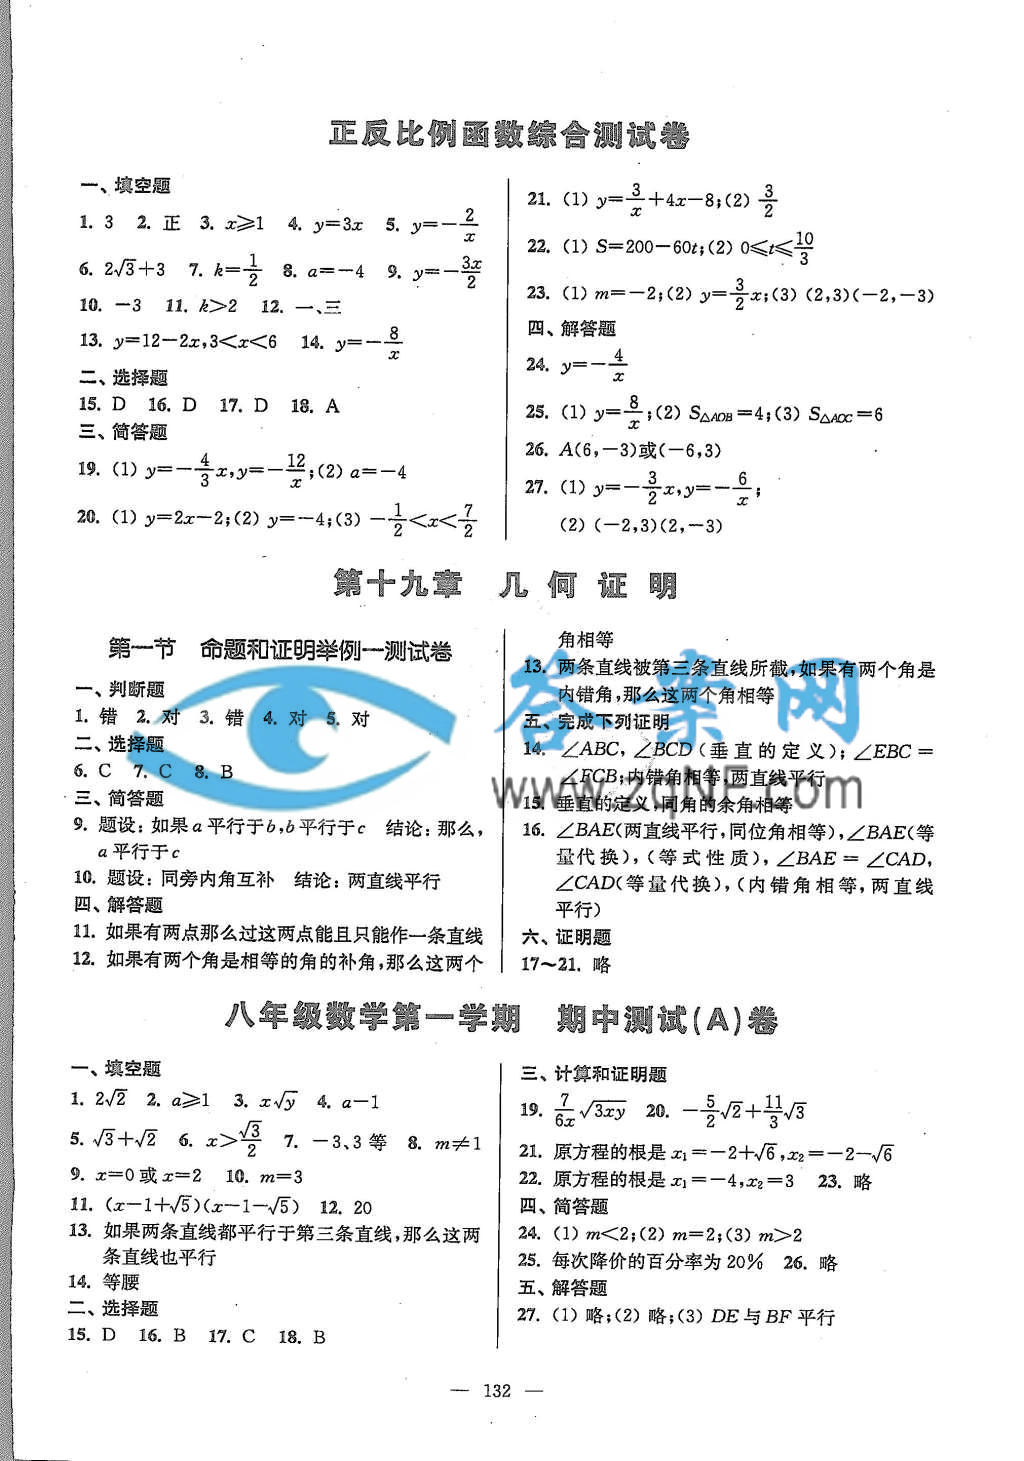 正反比例函数综合测试卷
一、填空题
1. 3 2. 正 3. x⩾1 4. y=3x 5. y=-2/x
6. 2√3+3 7. k=1/2 8. a=-4 9. y=-3x/2
10. -3 11. k>2 12. 一、三
13. y=12-2x,3<x<6 14. y=-8/x
二、选择题
15. D 16. D 17. D 18. A
三、简答题
19. (1) y=-4/3x,y=-12/x;(2) a=-4
20. (1) y=2x-2;(2) y=-4;(3) -1/2<x<7/2
21. (1) y=3/x+4x-8;(2) 3/2
22. (1) S=200-60t;(2) 0⩽t⩽10/3
23. (1) m=-2;(2) y=3/2x;(3) (2,3)(-2,-3)
四、解答题
24. y=-4/x
25. (1) y=8/x;(2) S△AOB=4;(3) S△AOC=6
26. A(6,-3)或(-6,3)
27. (1) y=-3/2x,y=-6/x;
(2) (-2,3)(2,-3)
第十九章 几何证明
第一节 命题和证明举例—测试卷
一、判断题
1. 错 2. 对 3. 错 4. 对 5. 对
二、选择题
6. C 7. C 8. B
三、简答题
9. 题设:如果a平行于b,b平行于c 结论:那么,
a平行于c
10. 题设:同旁内角互补 结论:两直线平行
四、解答题
11. 如果有两点那么过这两点能且只能作一条直线
12. 如果有两个角是相等的角的补角,那么这两个
角相等
13. 两条直线被第三条直线所截,如果有两个角是
内错角,那么这两个角相等
五、完成下列证明
14. ∠ABC,∠BCD(垂直的定义);∠EBC=
∠FCB;内错角相等,两直线平行
15. 垂直的定义,同角的余角相等
16. ∠BAE(两直线平行,同位角相等),∠BAE(等
量代换),(等式性质),∠BAE=∠CAD,
∠CAD(等量代换),(内错角相等,两直线
平行)
六、证明题
17~21. 略
答案网
www.zqnf.com
八年级数学第一学期 期中测试(A)卷
一、填空题
1. 2√2 2. a⩾1 3. x√y 4. a-1
5. √3+√2 6. x>√3/2 7. -3、3等 8. m≠1
9. x=0或x=2 10. m=3
11. (x-1+√5)(x-1-√5) 12. 20
13. 如果两条直线都平行于第三条直线,那么这两
条直线也平行
14. 等腰
二、选择题
15. D 16. B 17. C 18. B
三、计算和证明题
19. 7/6x√3xy 20. -5/2√2+11/3√3
21. 原方程的根是x₁=-2+√6,x₂=-2-√6
22. 原方程的根是x₁=-4,x₂=3 23. 略
四、简答题
24. (1) m<2;(2) m=2;(3) m>2
25. 每次降价的百分率为20% 26. 略
五、解答题
27. (1) 略;(2) 略;(3) DE与BF平行
— 132 —